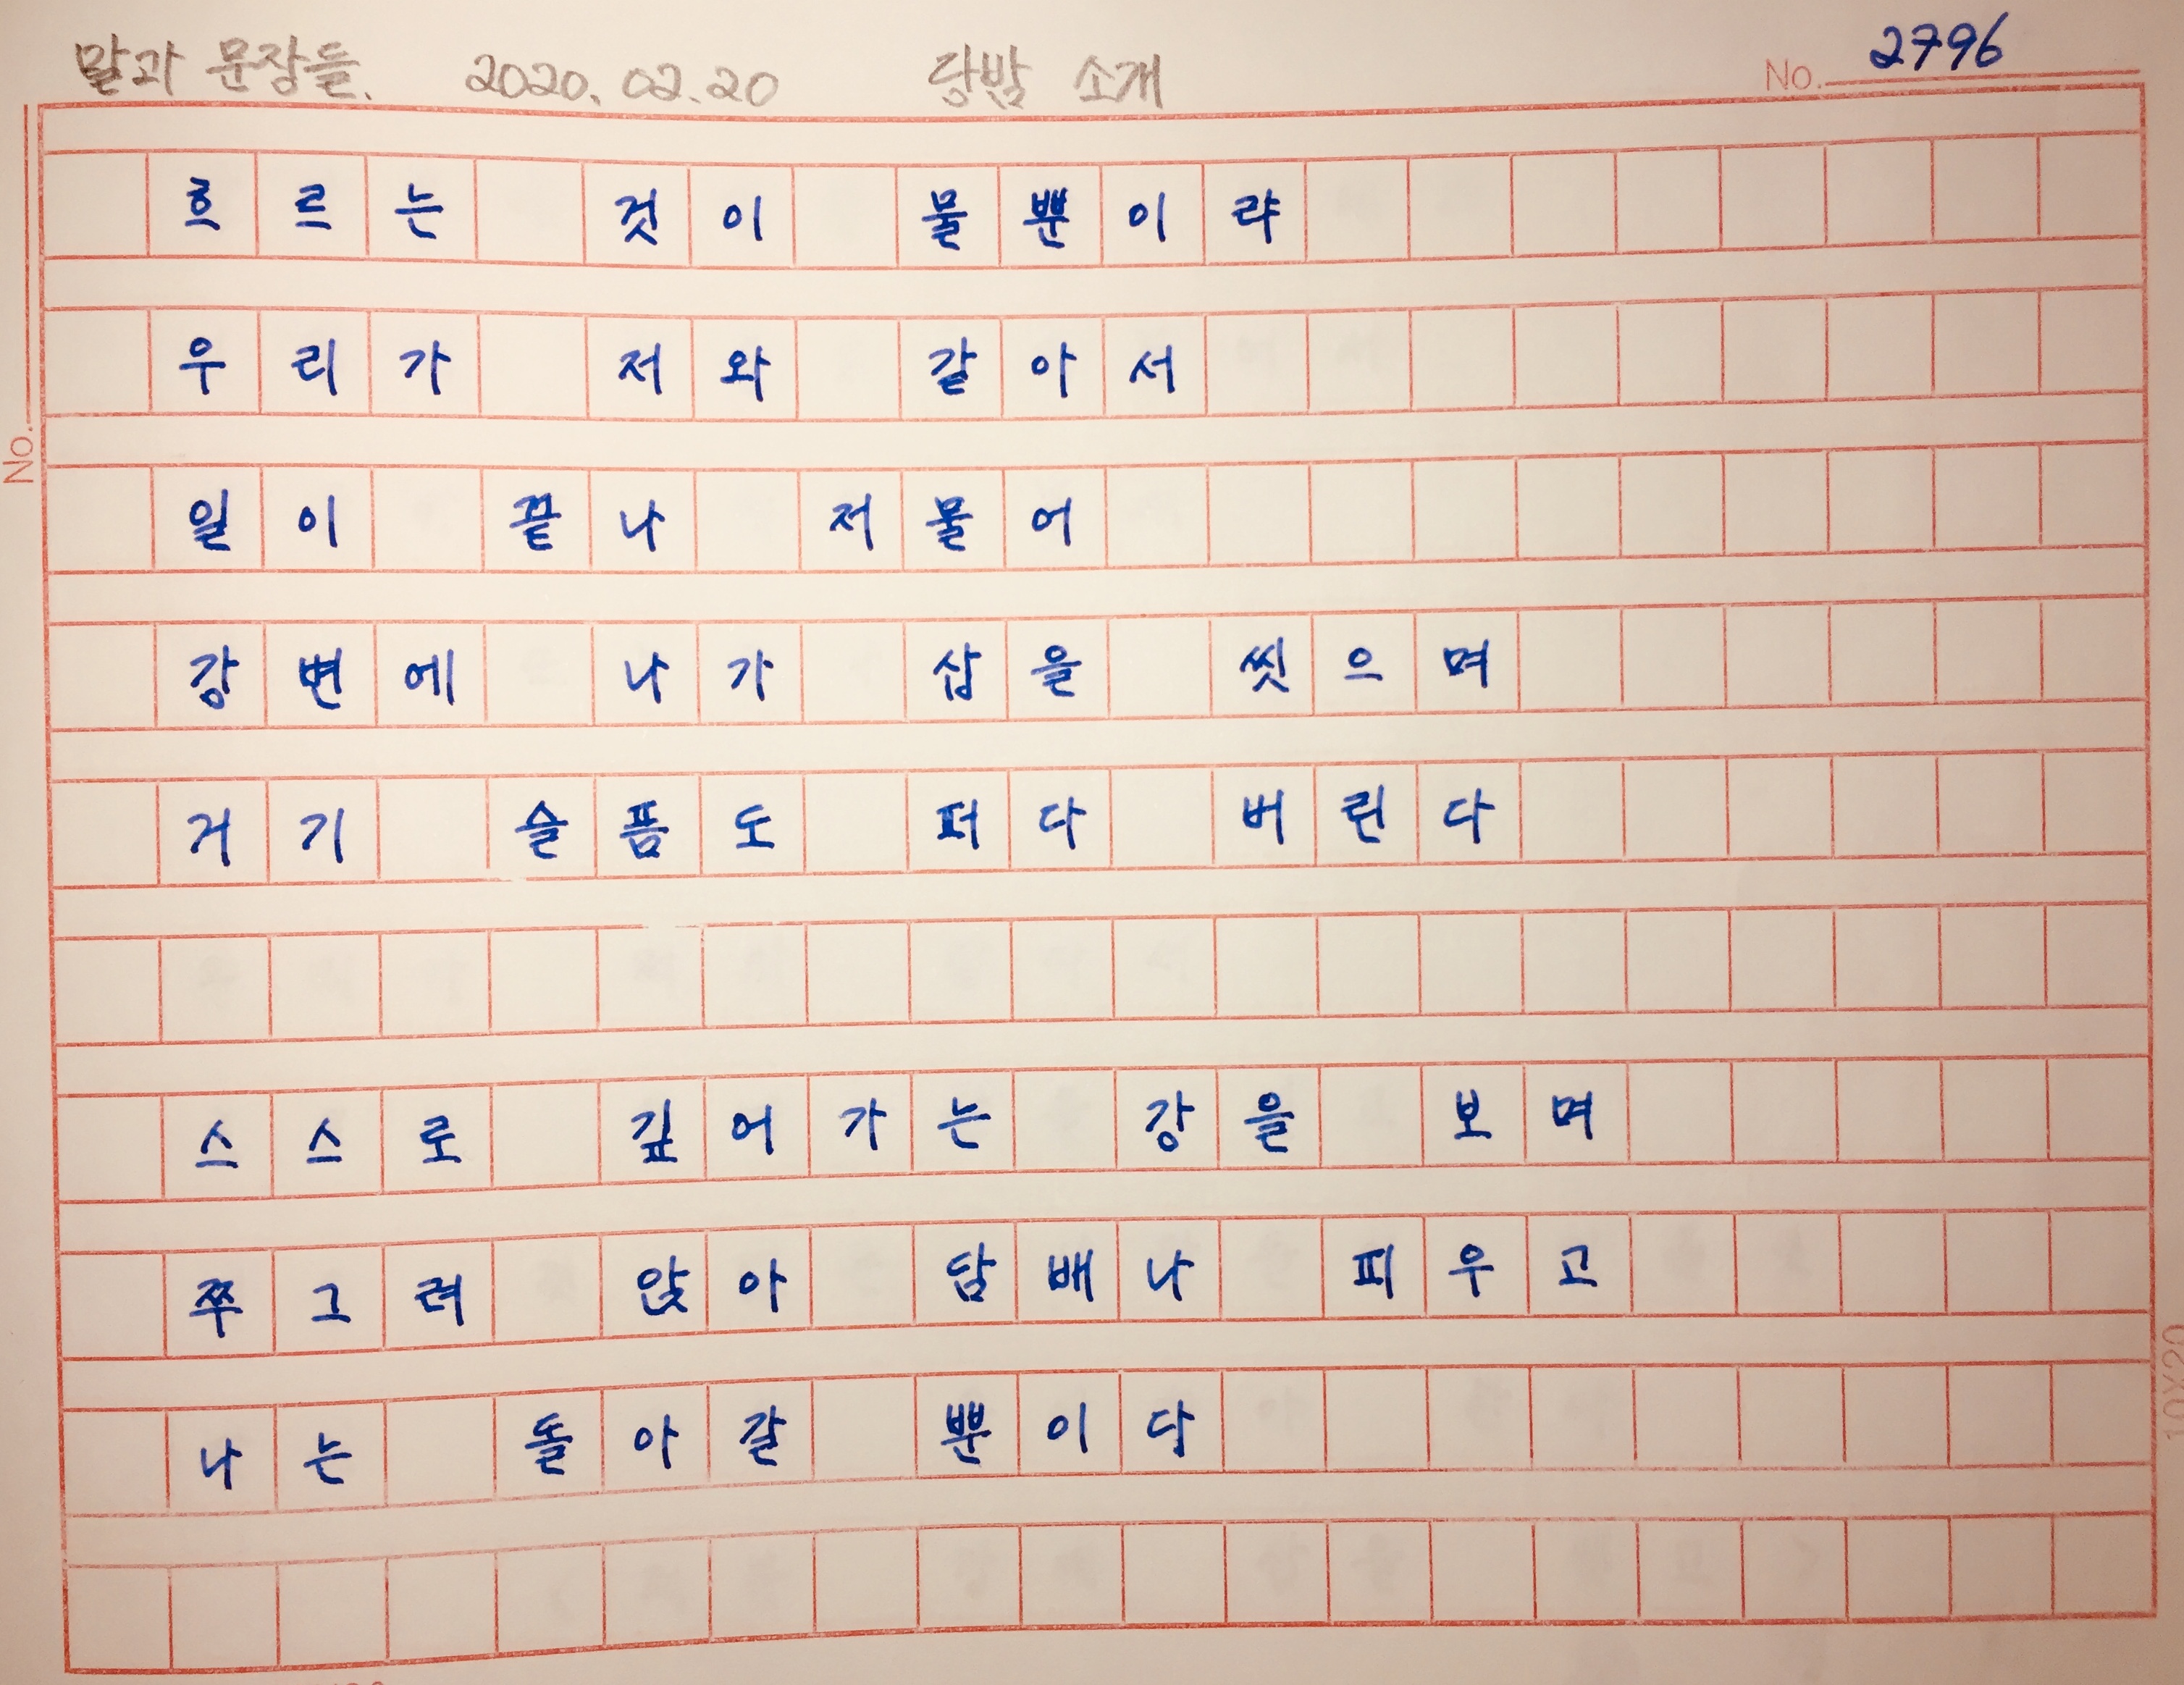 말과 문장들. 2020. 02. 20 당밤 소개
No. 2796
흐르는 것이 물뿐이랴
우리가 저와 같아서
일이 끝나 저물어
강변에 나가 삽을 씻으며
거기 슬픔도 퍼다 버린다
스스로 깊어가는 강을 보며
쭈그려 앉아 담배나 피우고
나는 돌아갈 뿐이다
No.
10X20